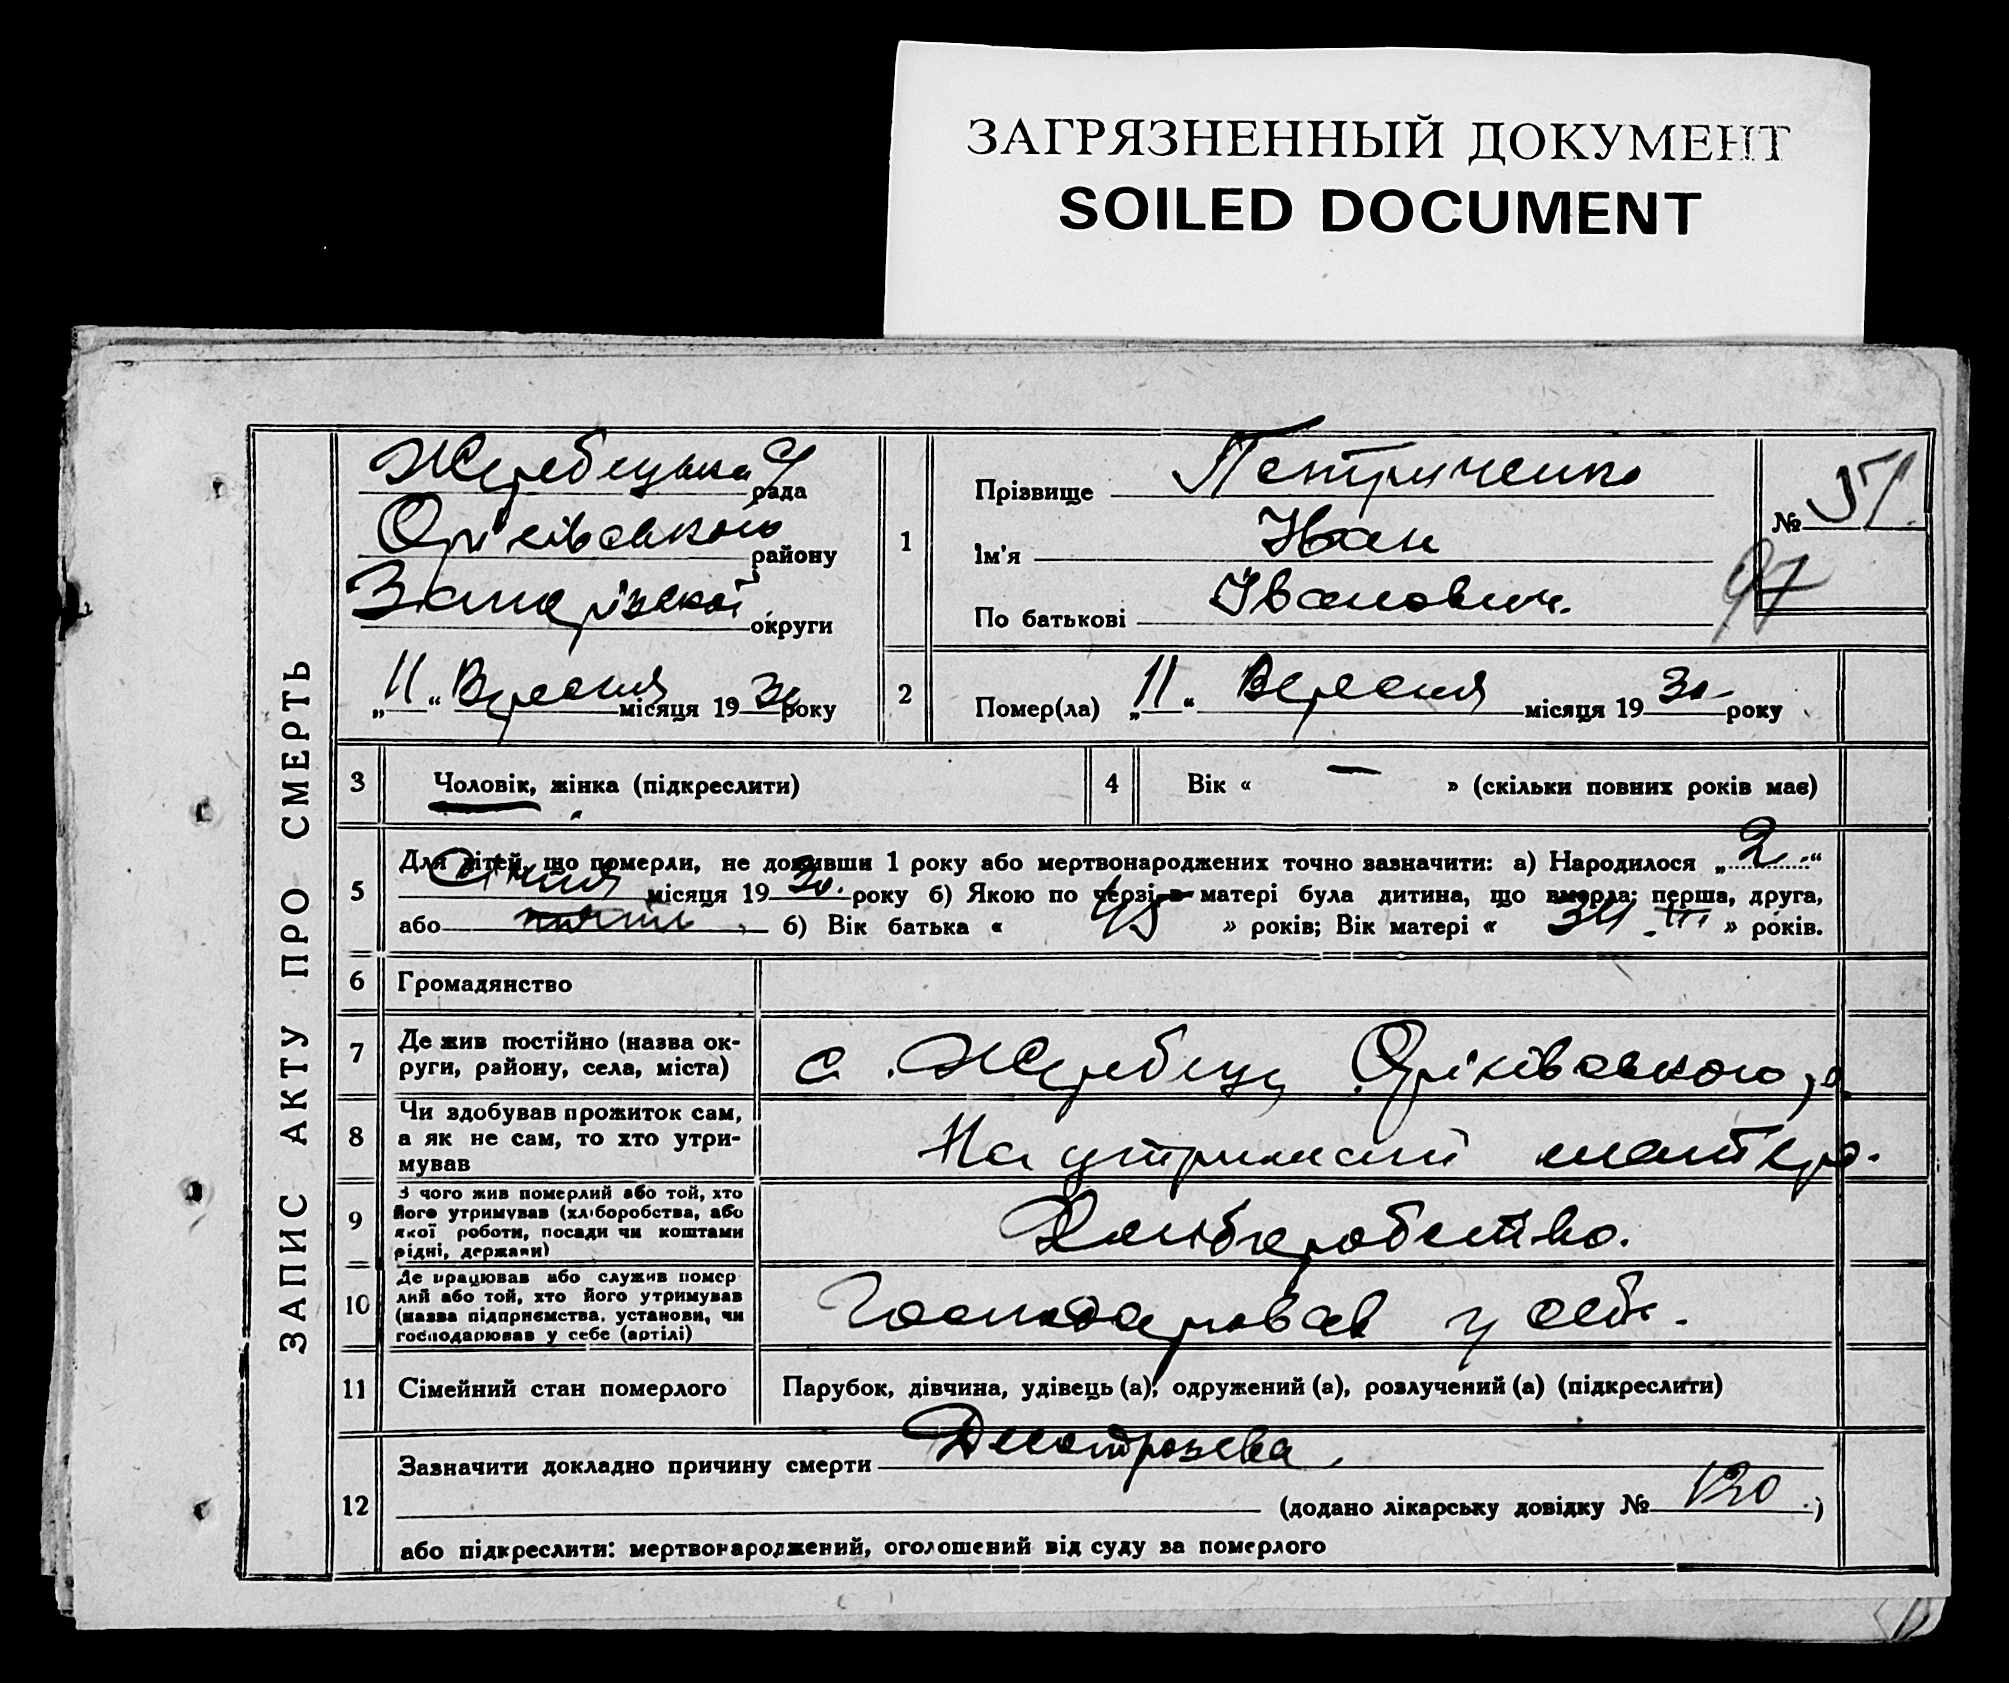 ЗАГРЯЗНЕННЫЙ ДОКУМЕНТ
SOILED DOCUMENT
ЗАПИС АКТУ ПРО СМЕРТЬ
Жеребецька рада
Оріхівського району
Запорізької округи
„11“ Вересня місяця 1930 року
1
Прізвище Петриченко
Ім'я Иван
По батькові Іванович.
№ 51
97
2
Помер(ла) „11“ Вересня місяця 1930 року
3 Чоловік, жінка (підкреслити)
4 Вік « — » (скільки повних років має)
5 Для дітей, що померли, не доживши 1 року або мертвонароджених точно зазначити: а) Народилося „2“
Січня місяця 1930 року б) Якою по черзі в матері була дитина, що вмерла: перша, друга,
або б) Вік батька « 45 » років; Вік матері « 34 » років.
6 Громадянство
7 Де жив постійно (назва округи, району, села, міста)
с. Жеребець Оріхівського р.
8 Чи здобував прожиток сам, а як не сам, то хто утримував
На утриманні матері.
9 З чого жив померлий або той, хто його утримував (хліборобства, або якої роботи, посади чи коштами рідні, держави)
Хліборобство.
10 Де працював або служив померлий або той, хто його утримував (назва підприємства, установи, чи господарював у себе (артілі)
Господарював у себе.
11 Сімейний стан померлого
Парубок, дівчина, удівець (а), одружений (а), розлучений (а) (підкреслити)
12 Зазначити докладно причину смерти
(додано лікарську довідку № 120.)
або підкреслити: мертвонароджений, оголошений від суду за померлого